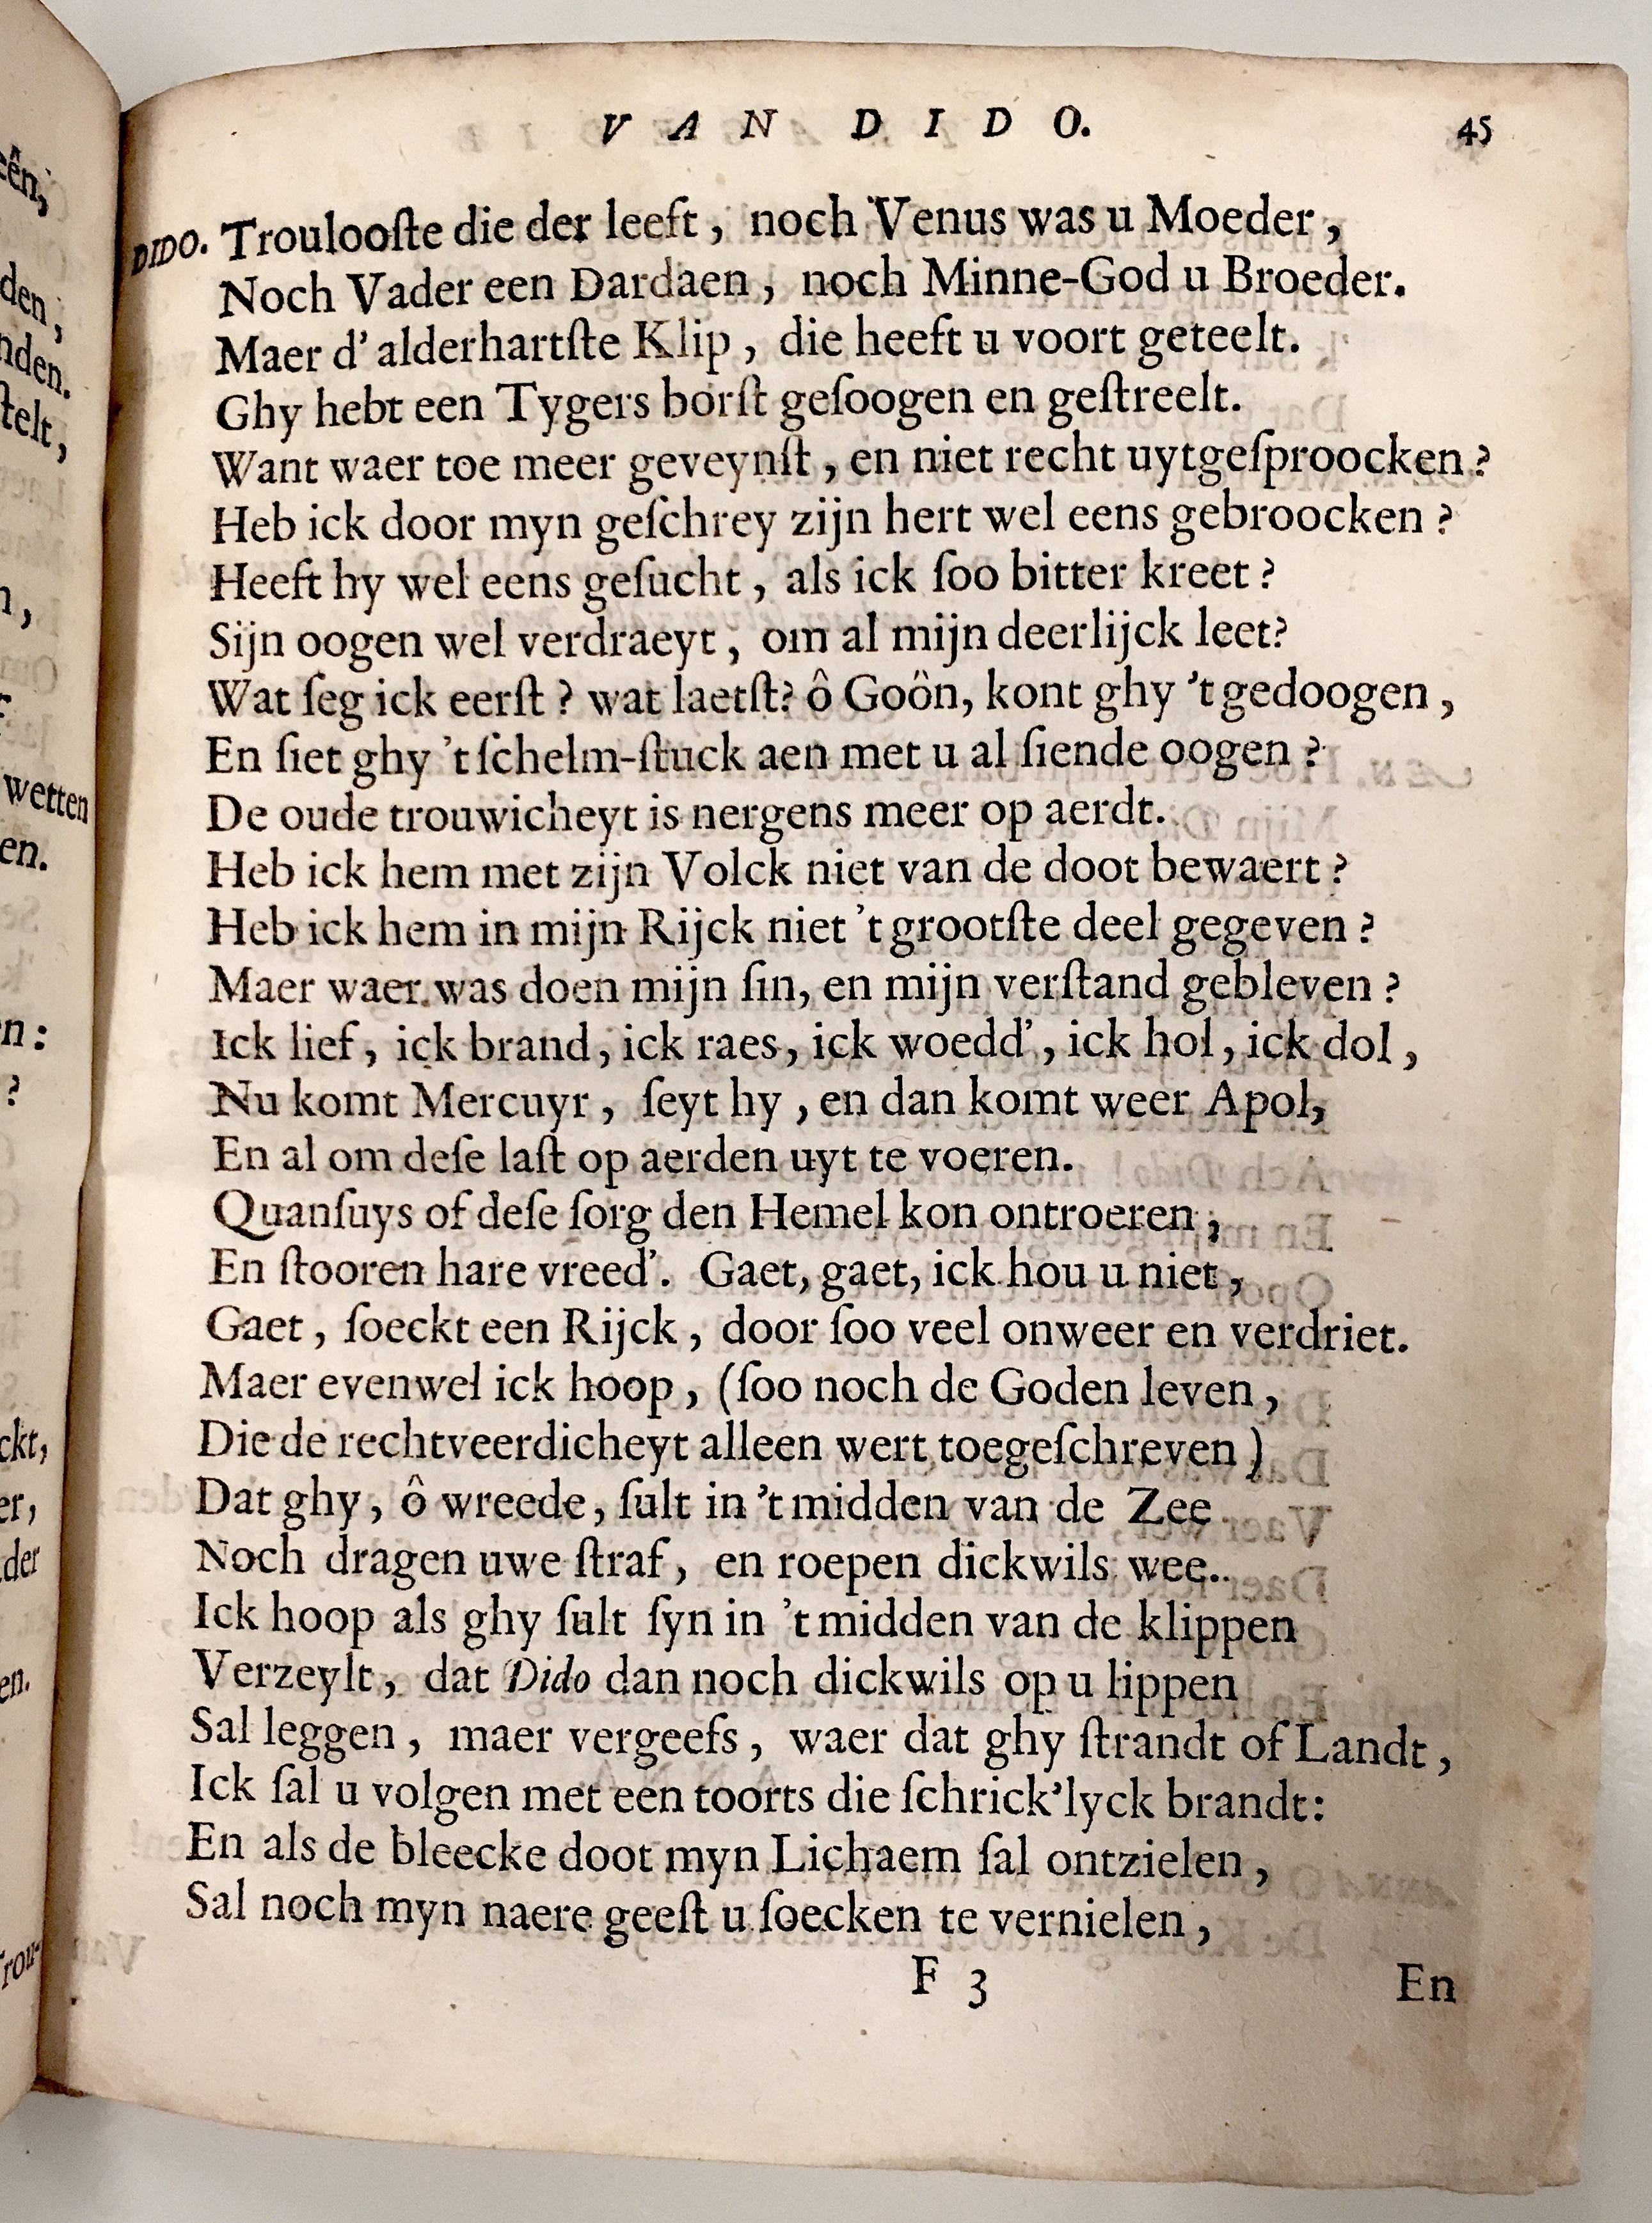 VAN DIDO. 45
DIDO. Troulooſte die der leeft, noch Venus was u Moeder,
Noch Vader een Dardaen, noch Minne-God u Broeder.
Maer d' alderhartſte Klip, die heeft u voort geteelt.
Ghy hebt een Tygers borſt geſoogen en geſtreelt.
Want waer toe meer geveynſt, en niet recht uytgeſproocken?
Heb ick door myn geſchrey zijn hert wel eens gebroocken?
Heeft hy wel eens geſucht, als ick ſoo bitter kreet?
Sijn oogen wel verdraeyt, om al mijn deerlijck leet?
Wat ſeg ick eerſt? wat laetſt? ô Goôn, kont ghy 't gedoogen,
En ſiet ghy 't ſchelm-ſtuck aen met u al ſiende oogen?
De oude trouwicheyt is nergens meer op aerdt.
Heb ick hem met zijn Volck niet van de doot bewaert?
Heb ick hem in mijn Rijck niet 't grootſte deel gegeven?
Maer waer was doen mijn ſin, en mijn verſtand gebleven?
Ick lief, ick brand, ick raes, ick woedd', ick hol, ick dol,
Nu komt Mercuyr, ſeyt hy, en dan komt weer Apol,
En al om deſe laſt op aerden uyt te voeren.
Quanſuys of deſe ſorg den Hemel kon ontroeren,
En ſtooren hare vreed'. Gaet, gaet, ick hou u niet,
Gaet, ſoeckt een Rijck, door ſoo veel onweer en verdriet.
Maer evenwel ick hoop, (ſoo noch de Goden leven,
Die de rechtveerdicheyt alleen wert toegeſchreven)
Dat ghy, ô wreede, ſult in 't midden van de Zee
Noch dragen uwe ſtraf, en roepen dickwils wee..
Ick hoop als ghy ſult ſyn in 't midden van de klippen
Verzeylt, dat Dido dan noch dickwils op u lippen
Sal leggen, maer vergeefs, waer dat ghy ſtrandt of Landt,
Ick ſal u volgen met een toorts die ſchrick'lyck brandt:
En als de bleecke doot myn Lichaem ſal ontzielen,
Sal noch myn naere geeſt u ſoecken te vernielen,
F 3 En